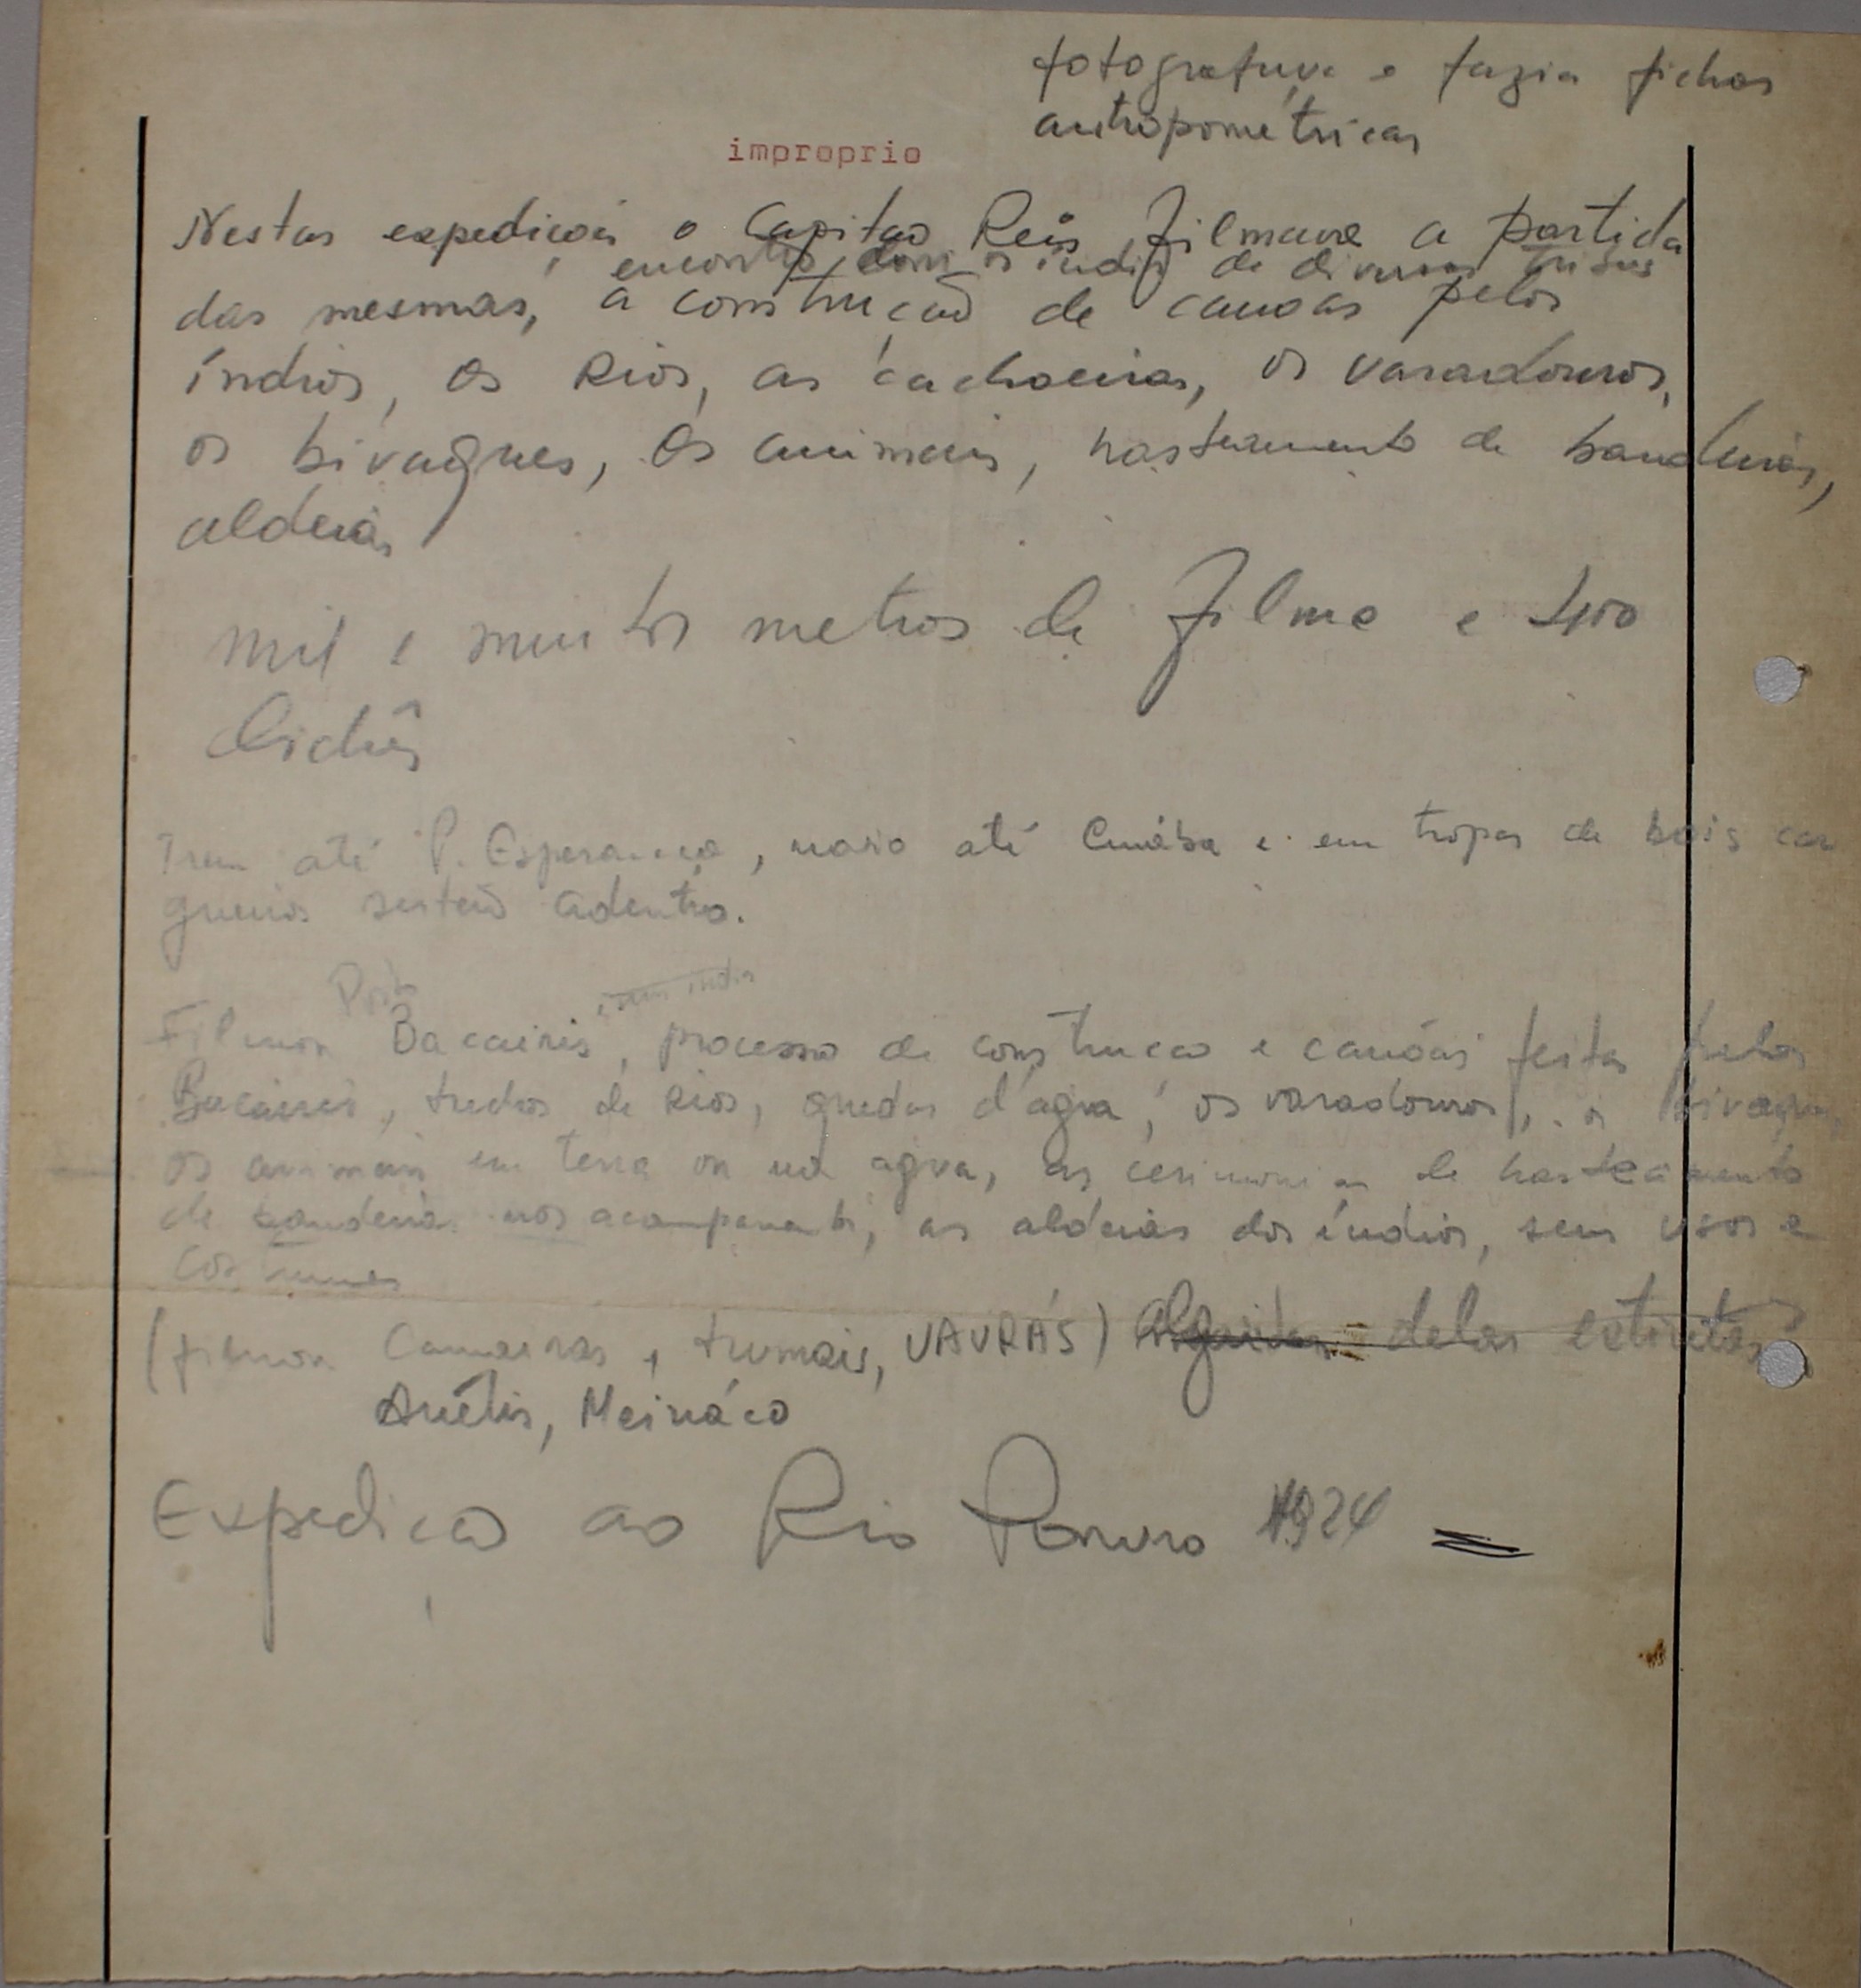 fotografava e fazia fichas
antropométricas
improprio
Nestas expedições o Capitão Reis filmava a partida
encontro com os índios de diversas tribus
das mesmas, a construção de canoas pelos
índios, os Rios, as cachoeiras, os varadouros,
os bivaques, os animais, hasteamento de bandeiras,
aldeias
mil e muitos metros de filme e 400
clichês
Trem até P. Esperança, navio até Cuiába e em tropas de bois car
gueiros sertão adentro.
Filmou Bacairis, processo de construcao e canôas feitas pelos
Bacairis, trechos de Rios, quedas d'agua, os varadouros, os bivaques,
os animais em terra ou na agua, as cerimonias de hasteamento
de bandeiras nos acampamentos, as aldeias dos índios, seus usos e
costumes
(filmou Camaiuras e trumais, VAURÁS) Algumas delas extintas
Anétis, Meináco
Expedição ao Rio Ronuro 1924 =